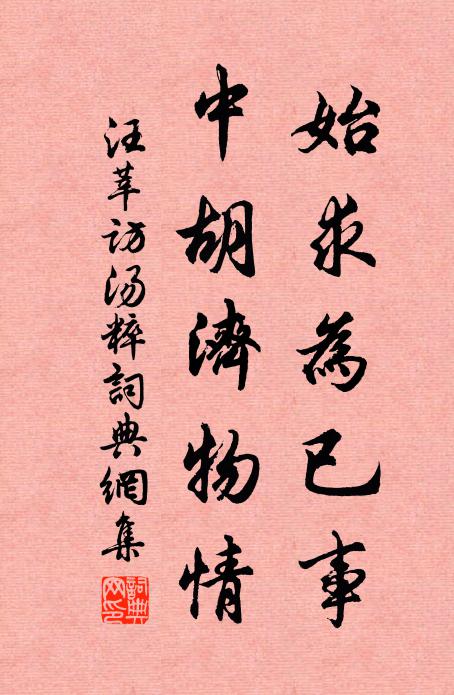 始求為已事
中胡濟物情
汪莘訪汤粹詞典網集
詞典
网印